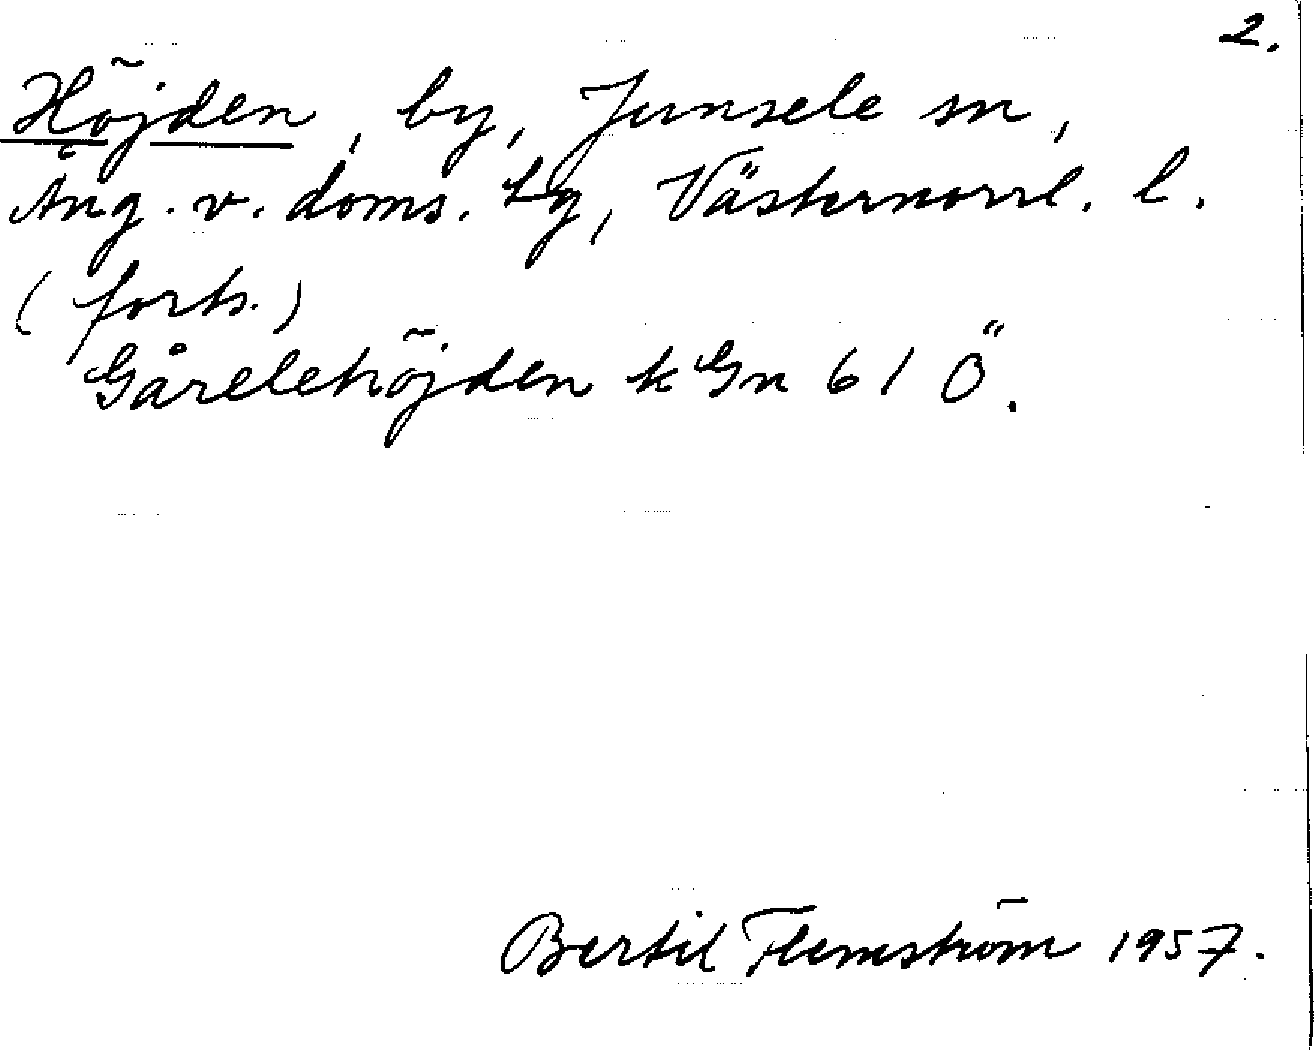 2.
Höjden, by, Junsele sn,
Ång. v. doms. tg, Västernorrl. l.
(forts.)
Gårelehöjden k Gn 61 Ö.
Bertil Flemström 1957.